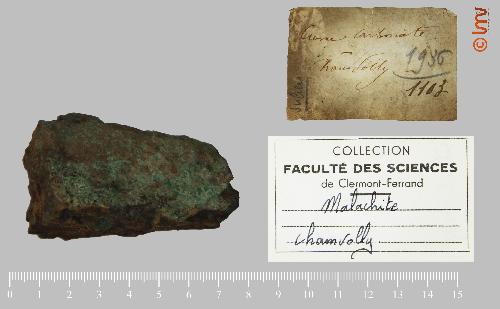 Cuivre carbonaté
Chamvolly
1936
1103
COLLECTION
FACULTÉ DES SCIENCES
de Clermont-Ferrand
Malachite
chamvolly
© lmv
0 1 2 3 4 5 6 7 8 9 10 11 12 13 14 15